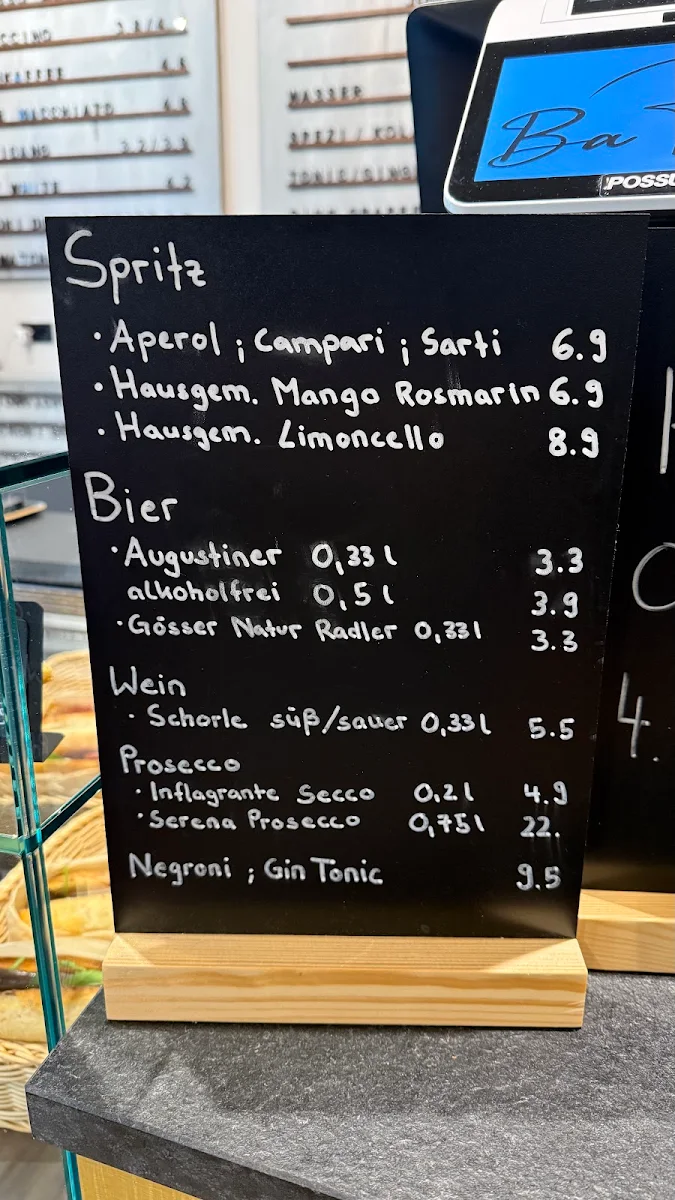 4.8
WASSER
4.8
SPEZI / KOL
3.2/3.3
TONIC/GING
WHITE
4.2
Ba
POSSU
Spritz
· Aperol ; Campari ; Sarti 6.9
· Hausgem. Mango Rosmarin 6.9
· Hausgem. Limoncello 8.9
Bier
· Augustiner 0,33 l 3.3
alkoholfrei 0,5 l 3.9
· Gösser Natur Radler 0,33 l 3.3
Wein
· Schorle süß/sauer 0,33 l 5.5
Prosecco
· Inflagrante Secco 0,2 l 4.9
· Serena Prosecco 0,75 l 22.
Negroni ; Gin Tonic 9.5
4.